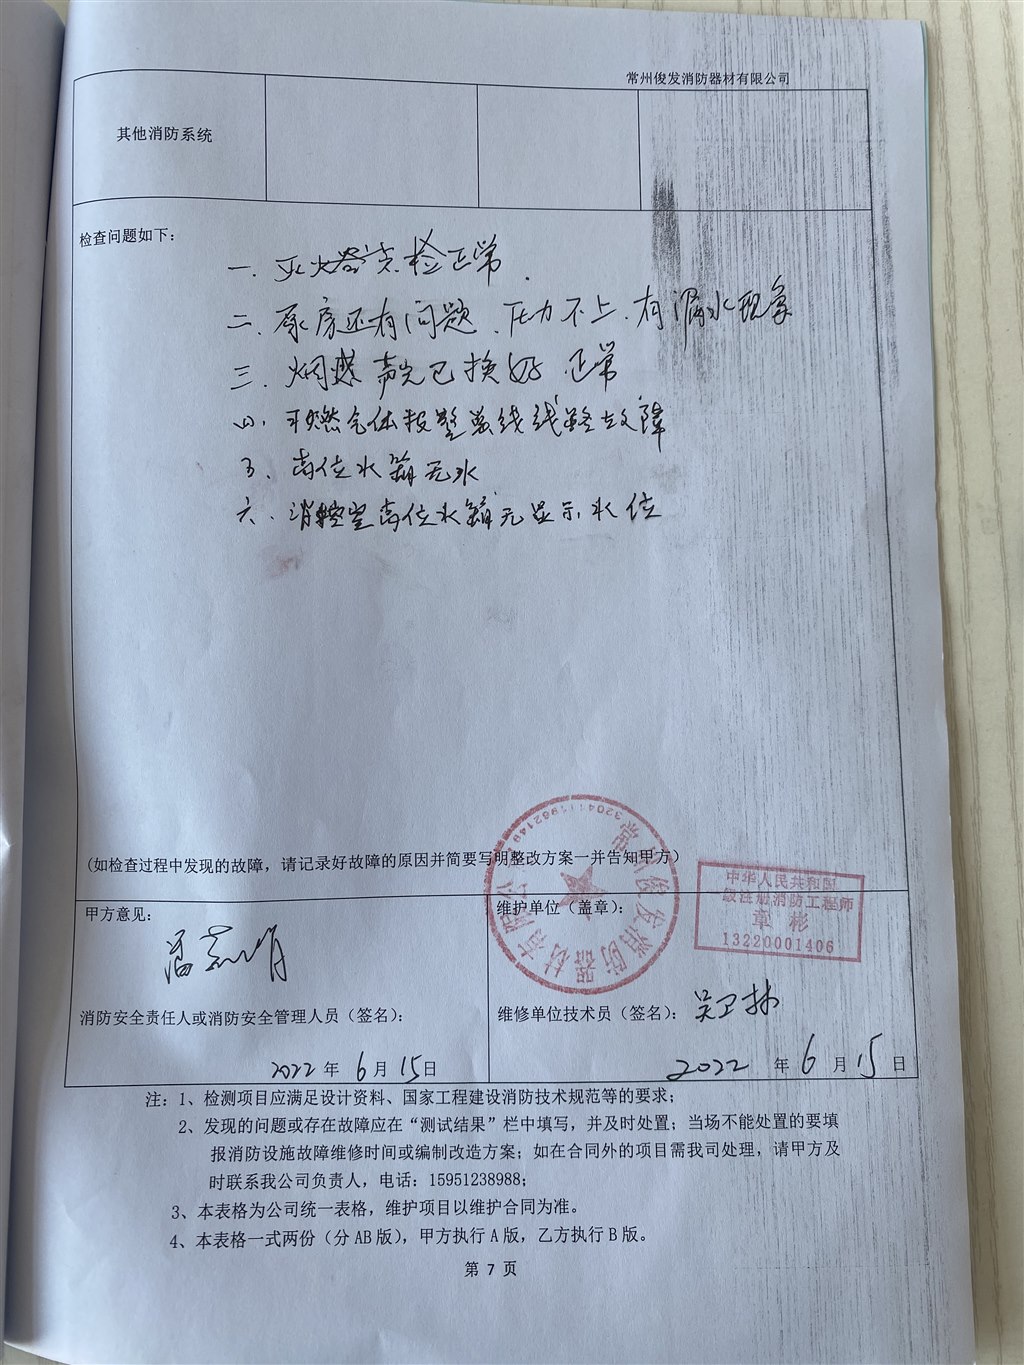 常州俊发消防器材有限公司
其他消防系统
检查问题如下：
一、灭火器点检正常.
二、厨房还有问题、压力不上、有漏水现象
三、烟感 已换好 正常
四、可燃气体报警总线线路故障
五、高位水箱无水
六、消控室高位水箱无显示水位
（如检查过程中发现的故障，请记录好故障的原因并简要写明整改方案一并告知甲方）
甲方意见：
维护单位（盖章）：
常州俊发消防器材有限公司
中华人民共和国
级注册消防工程师
章 彬
13220001406
消防安全责任人或消防安全管理人员（签名）：
维修单位技术员（签名）：吴卫林
2022 年 6 月 15 日
2022 年 6 月 15 日
注：1、检测项目应满足设计资料、国家工程建设消防技术规范等的要求；
2、发现的问题或存在故障应在“测试结果”栏中填写，并及时处置；当场不能处置的要填
报消防设施故障维修时间或编制改造方案；如在合同外的项目需我司处理，请甲方及
时联系我公司负责人，电话：15951238988；
3、本表格为公司统一表格，维护项目以维护合同为准。
4、本表格一式两份（分 AB 版），甲方执行 A 版，乙方执行 B 版。
第 7 页